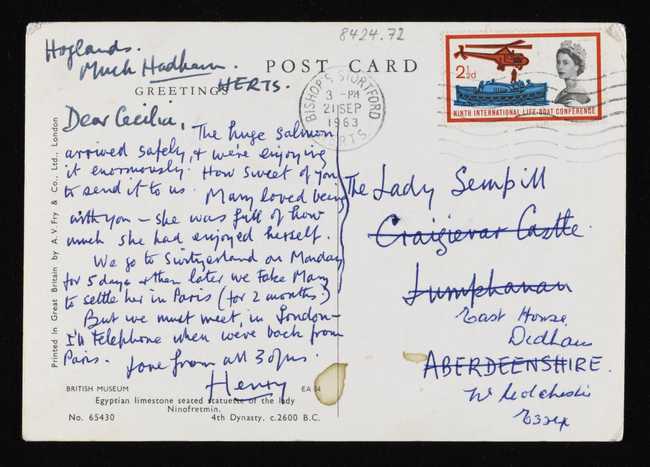 8424.72
Hoglands.
Much Hadham.
HERTS.
POST CARD
GREETINGS
Dear Cecilia,
The huge salmon
arrived safely, & we're enjoying
it enormously. How sweet of you
to send it to us. Mary loved being
with you – she was full of how
much she had enjoyed herself.
We go to Switzerland on Monday
for 5 days & then later we take Mary
to settle her in Paris (for 2 months.)
But we must meet, in London –
I'll telephone when we're back from
Paris.
love from all 3 of us.
Henry
BRITISH MUSEUM
EA 24
Egyptian limestone seated statuette of the lady
Ninofretmin.
No. 65430
4th Dynasty. c.2600 B.C.
Printed in Great Britain by A. V. Fry & Co., Ltd., London
BISHOP'S STORTFORD
3 - PM
21 SEP
1963
HERTS.
2½d
NINTH INTERNATIONAL LIFE-BOAT CONFERENCE
The Lady Sempill
Craigievar Castle
Lumphanan
East House
Dedham
ABERDEENSHIRE.
Nr Colchester
Essex